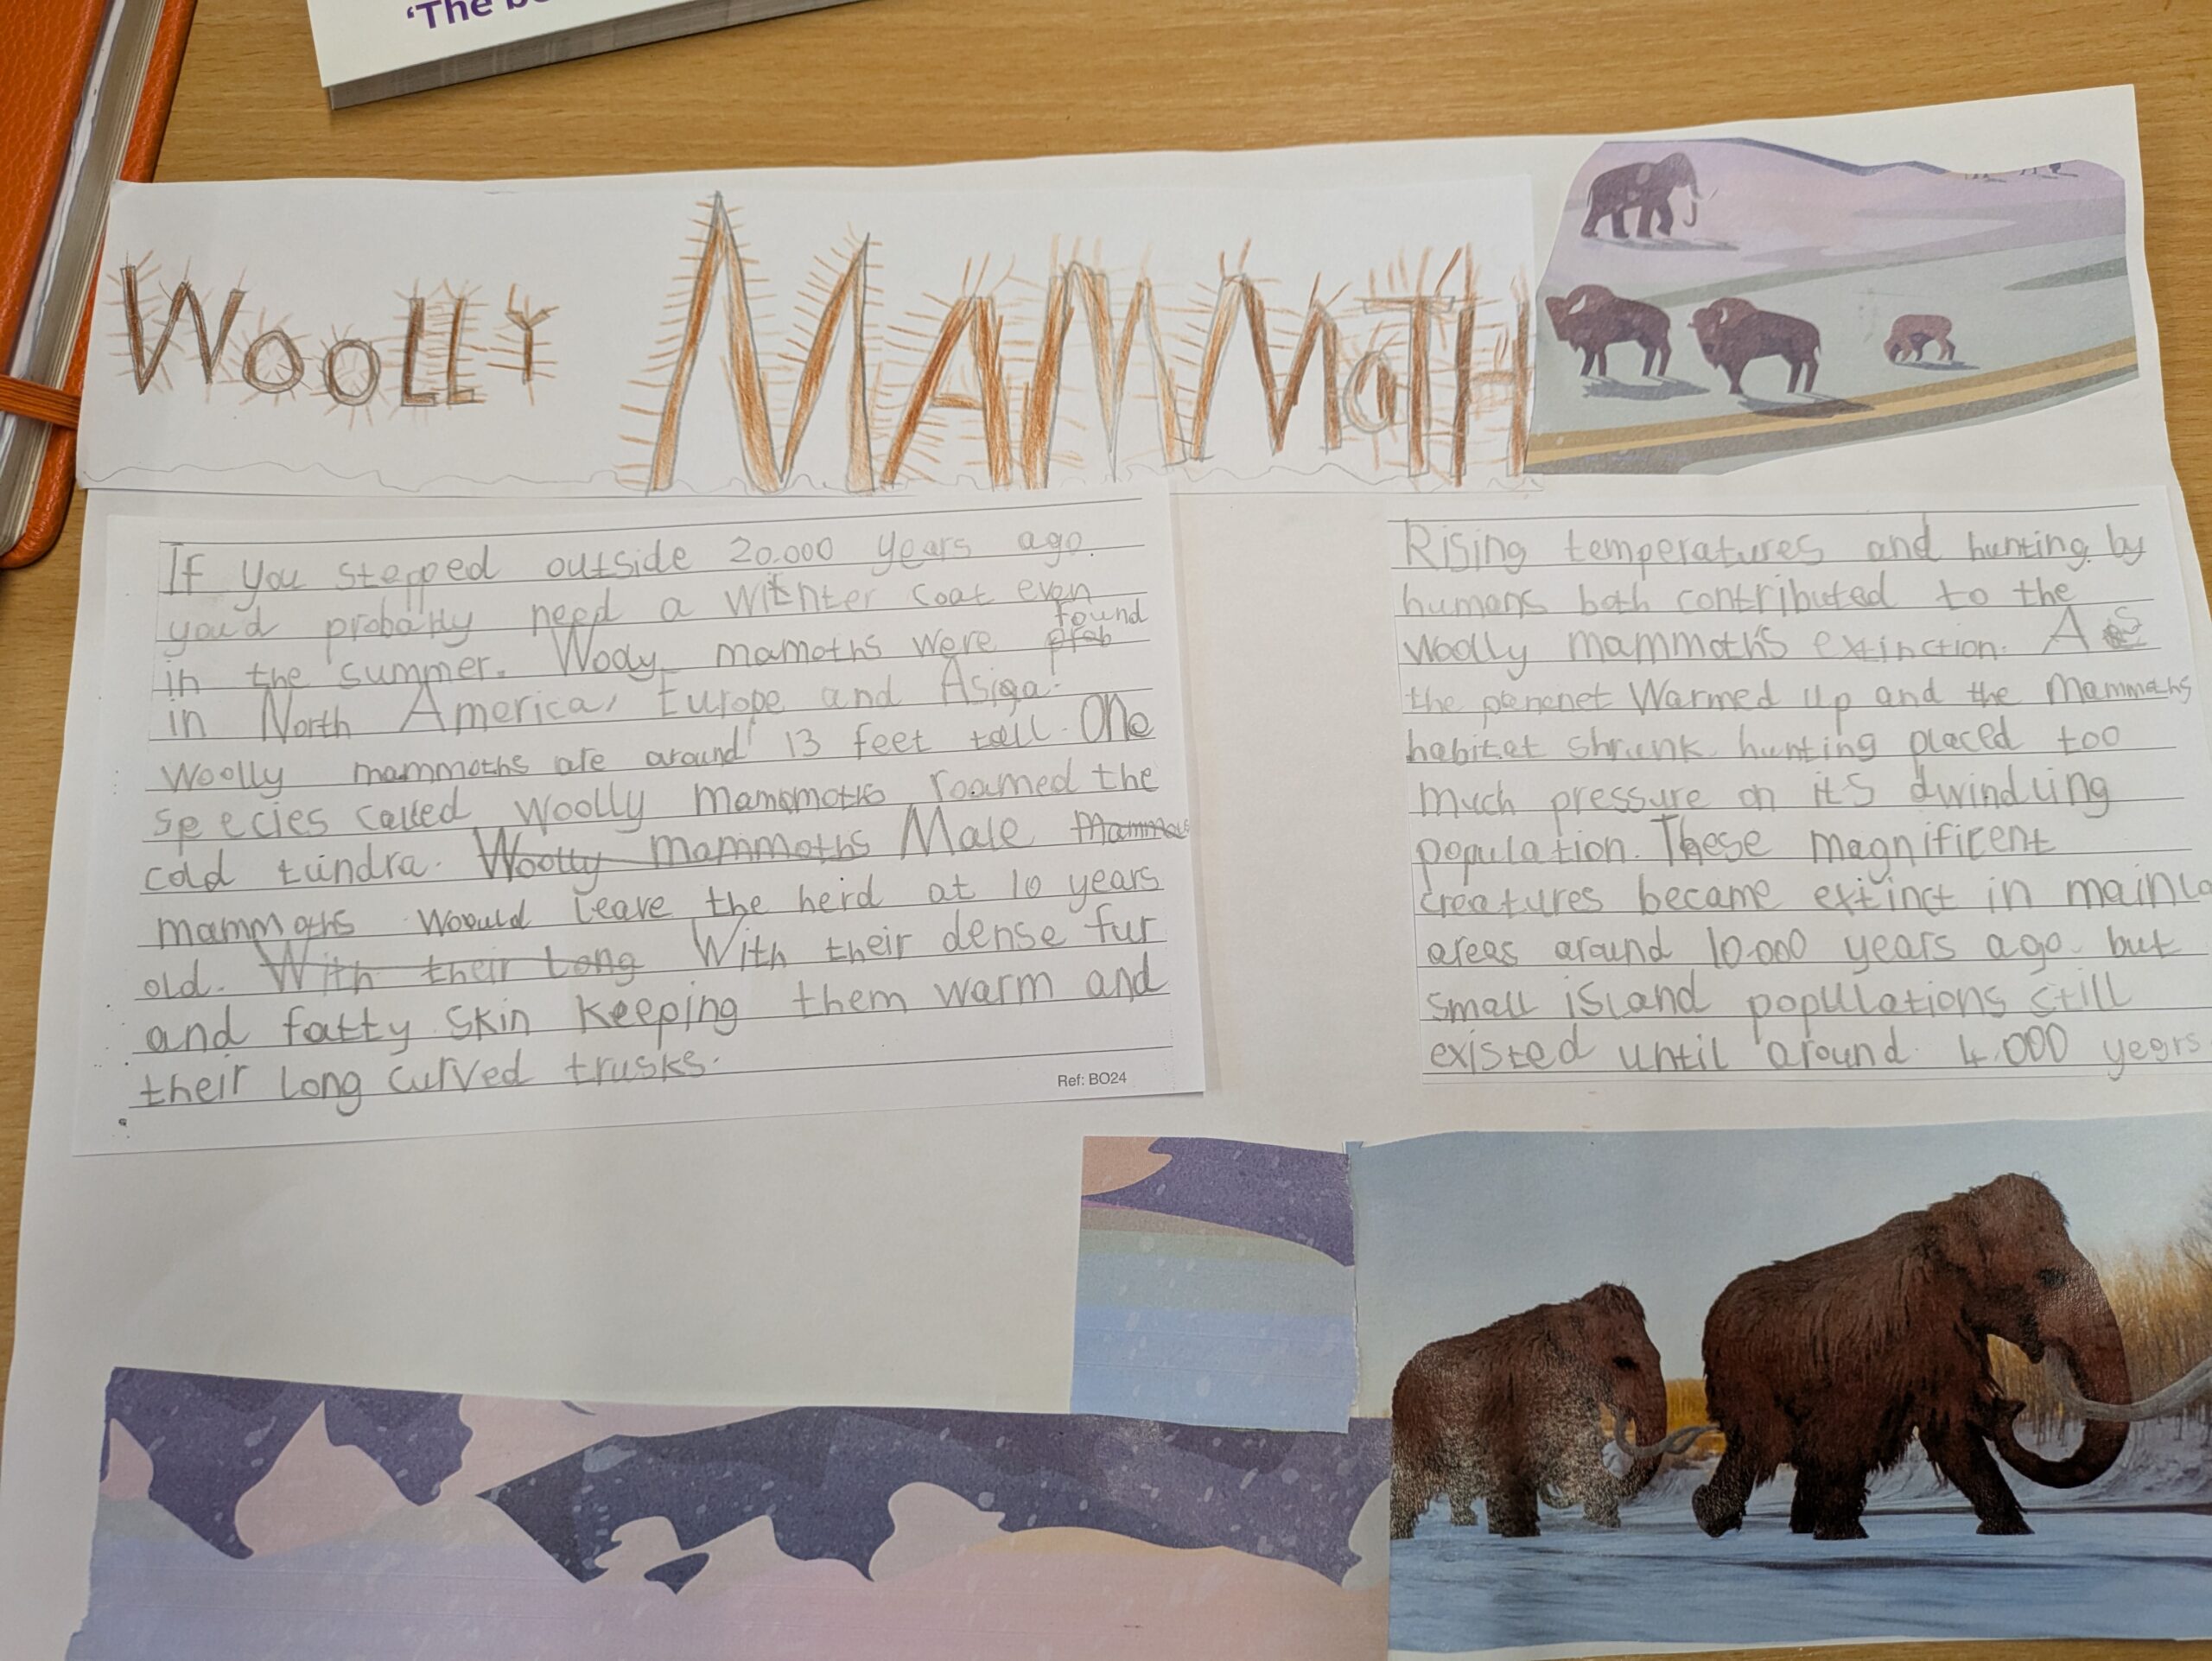 'The b
WOOLLY MAMMOTH
If you stepped outside 20.000 years ago.
you'd probally need a winter coat even
in the summer. Wooly mamoths were found
in North America, Europe and Asiga.
Woolly mammoths are around 13 feet tall. One
species called woolly mamomoths roamed the
cold tundra. Woolly mammoths Male Mammo
mammoths woould leave the herd at 10 years
old. With their Long With their dense fur
and fatty skin keeping them warm and
their long curved trusks.
Ref: BO24
Rising temperatures and hunting by
humans both contributed to the
woolly mammoth's extinction. As
the Warmed up and the Mammoths
habitat shrunk hunting placed too
much pressure on it's dwindling
population. These magnificent
creatures became extinct in mainla
areas around 10.000 years ago. but
small island populations still
existed until around 4.000 years